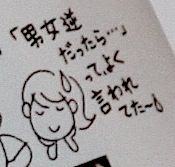 「男女逆
だったら…」
って、よく
言われ
てた〜